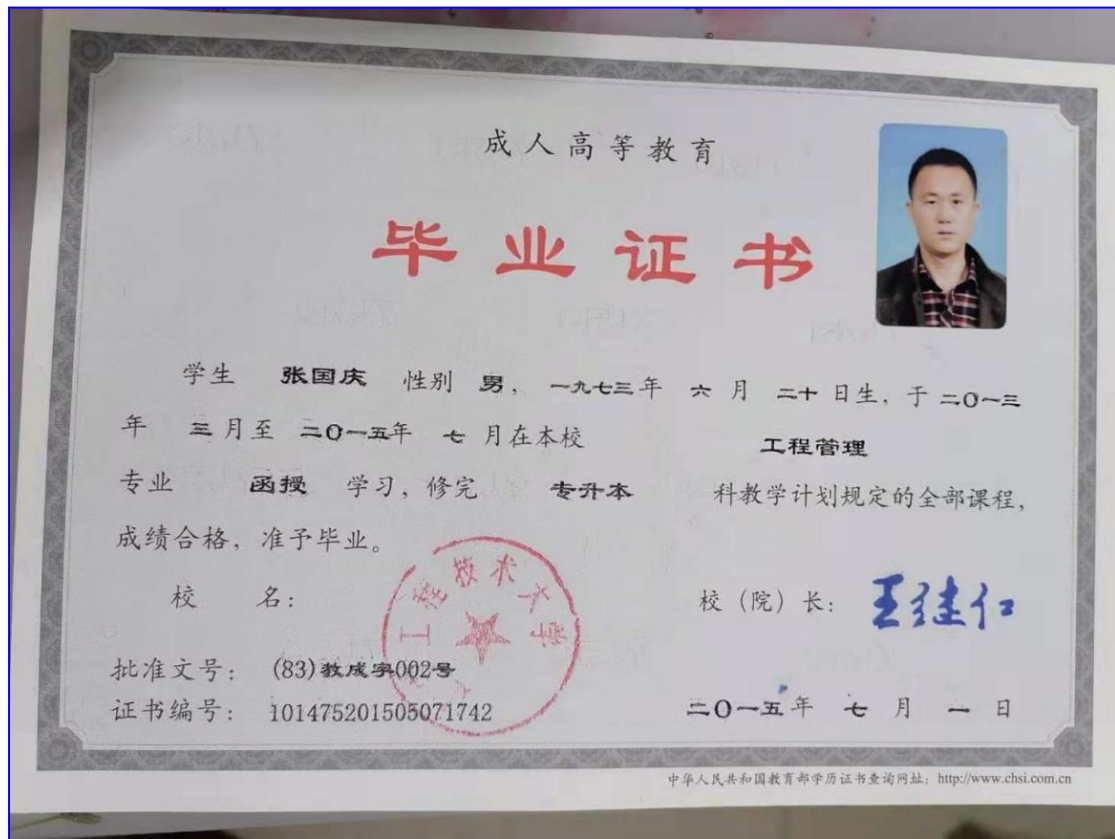 成人高等教育
毕业证书
学生 张国庆 性别 男, 一九七三年 六 月 二十 日生, 于 二0一三
年 三月至 二0一五年 七 月在本校 工程管理
专业 函授 学习, 修完 专升本 科教学计划规定的全部课程,
成绩合格, 准予毕业。
校 名:
工程技术大学
校（院）长: 王继仁
批准文号: (83)教成字002号
证书编号: 101475201505071742
二0一五年 七 月 一 日
中华人民共和国教育部学历证书查询网址: http://www.chsi.com.cn